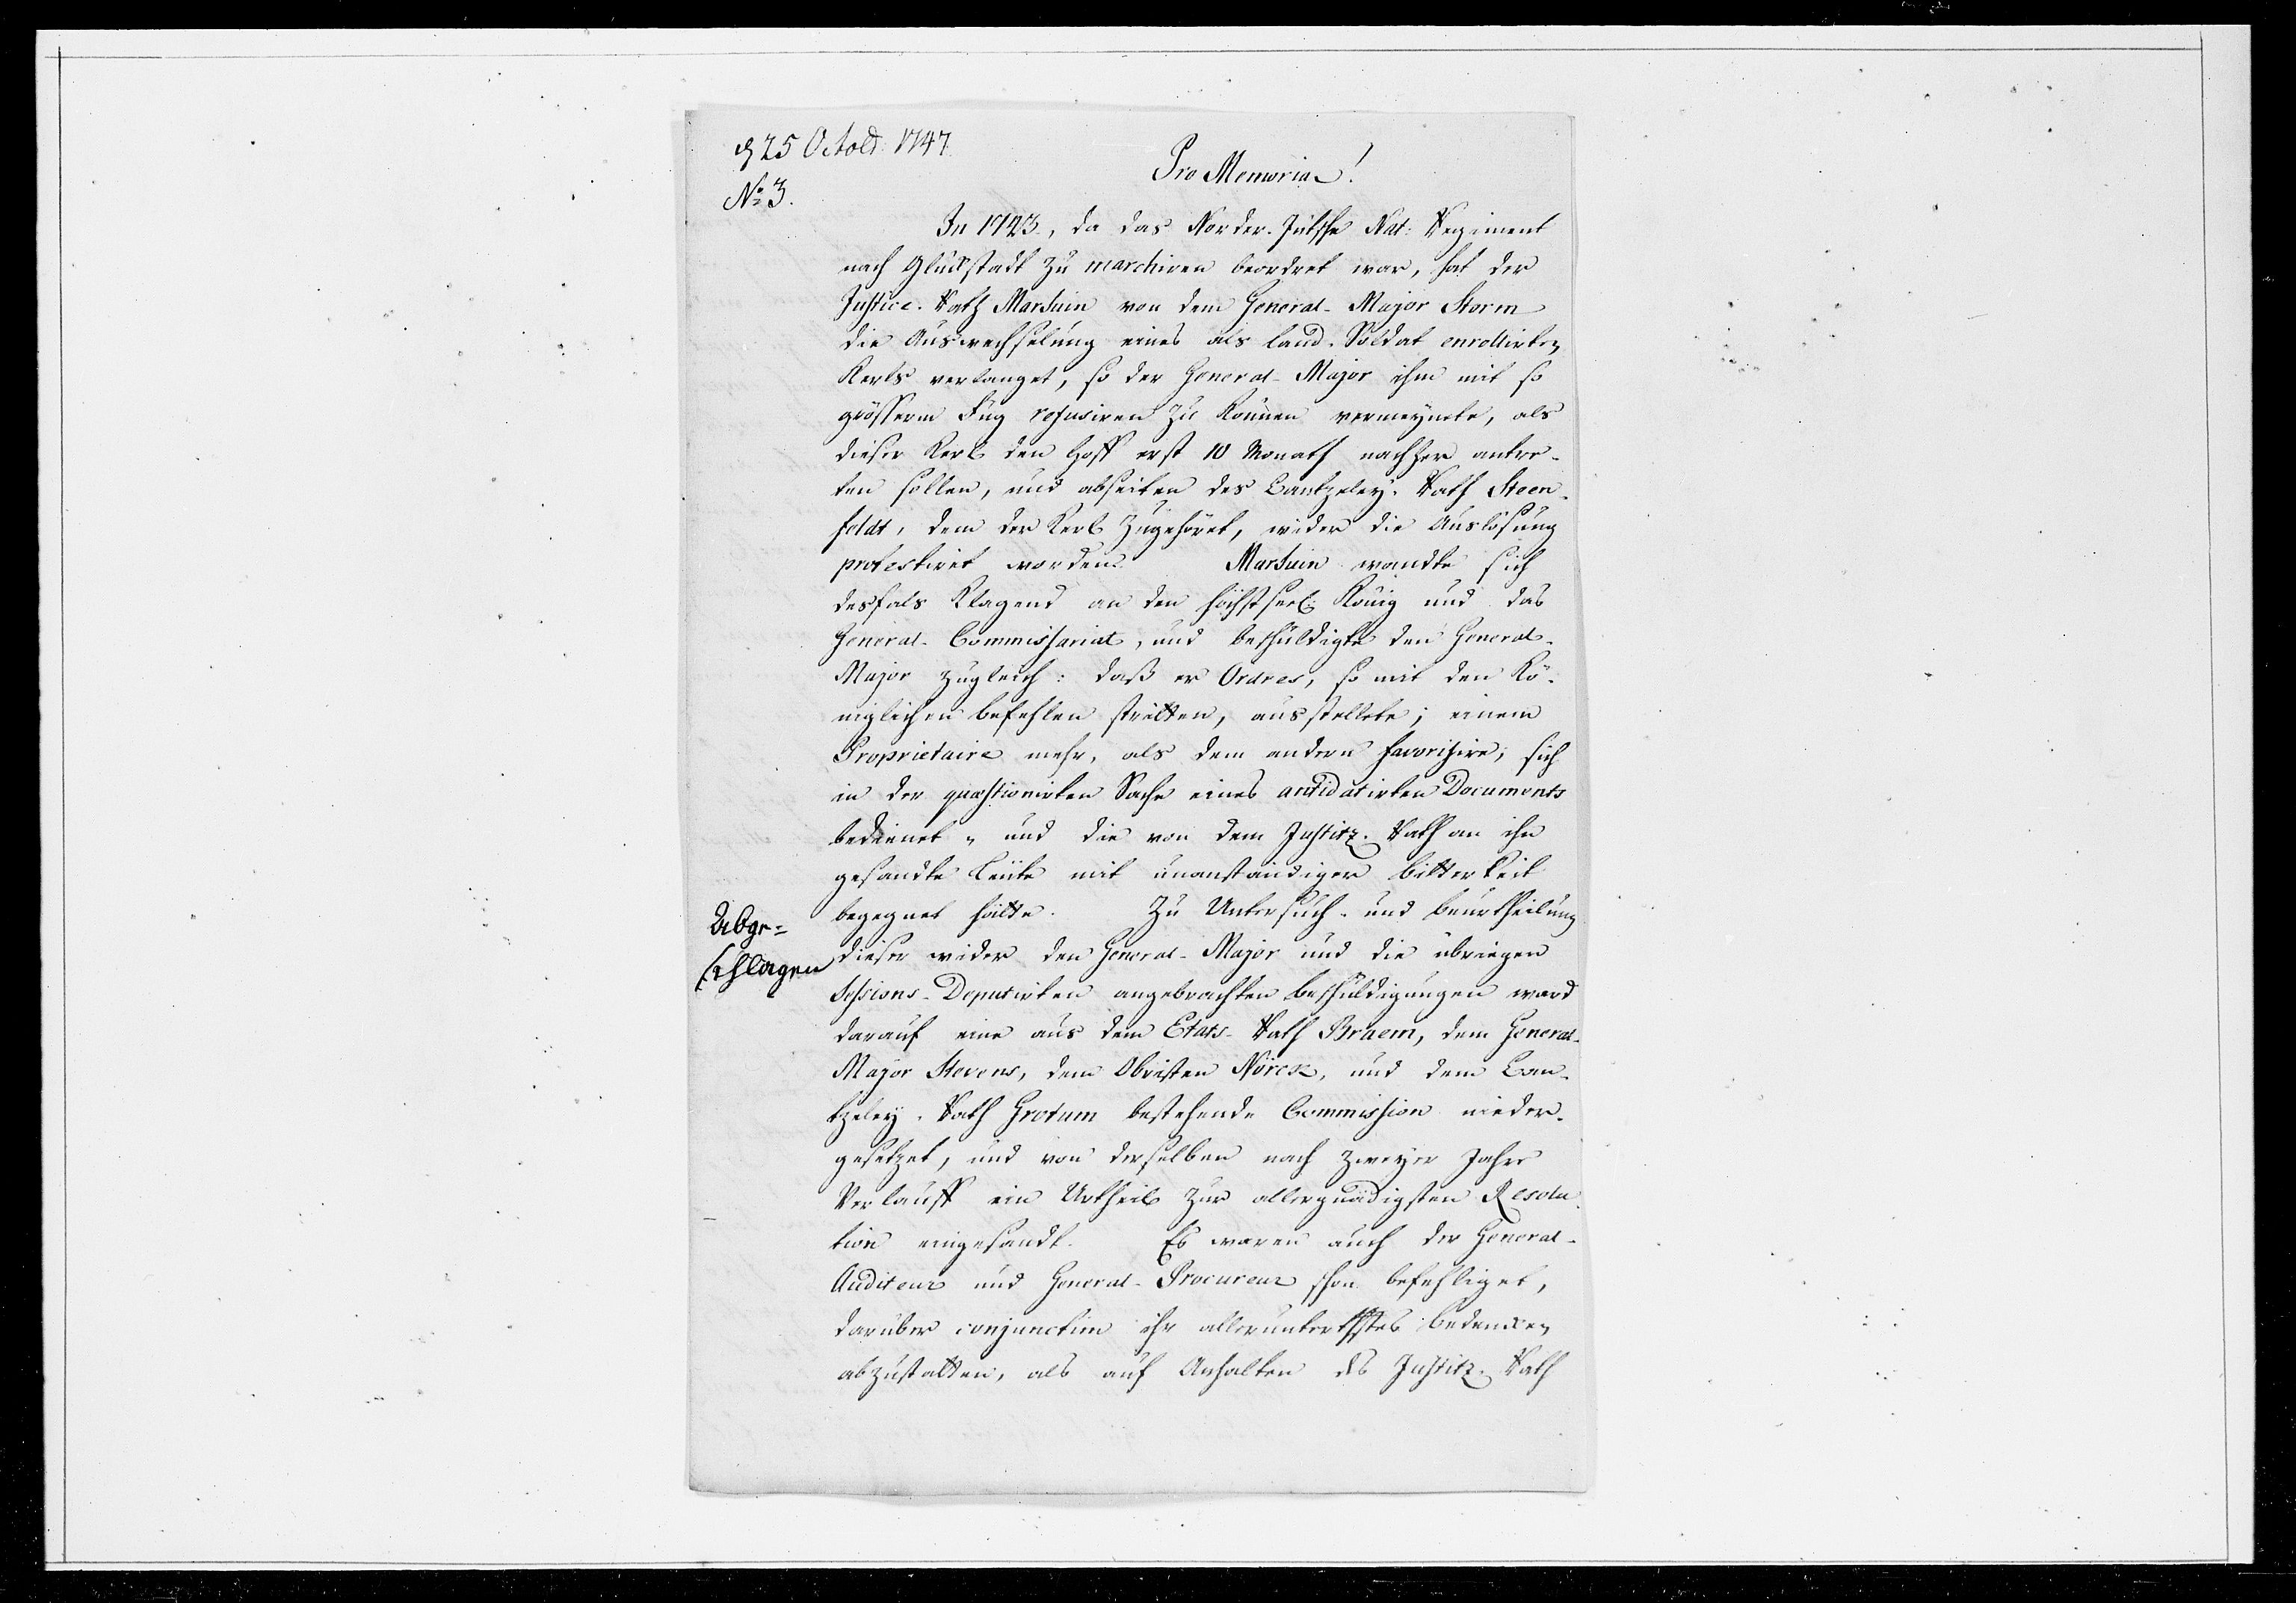 d 25 Octob: 1747
No 3.
Pro Memoria!
In 1743, da das Norder-Jütsche Nat: Regiment
nach Glückstadt zu marchiren beordret war, hat der
Justice-Rath Marsuin von dem General-Major Storm
die Auswechselung eines als Land-Soldat enrollirten
Kerls verlanget, so der General-Major ihm mit so
grösserm Fug refusiren zu können vermeynete, als
dieser Kerl den Hoff erst 10 Monath nachher antre-
ten sollen, und abseiten des Cantzeley-Rath Steen-
feldt, dem der Kerl zugehöret, wider die Auslösung
protestiret worden. Marsuin wandte sich
desfals klagend an den höchstseel: König und das
General-Commissariat, und beschuldigte den General-
Major zugleich: daß er Ordres, so mit den Kö-
niglichen Befehlen stritten, ausstellete; einem
Proprietaire mehr, als dem andern favorisire; sich
in der quæstionirten Sache eines antidatirten Documents
bedienet, und die von dem Justitz-Rath an ihn
gesandte Leute mit unanständiger Bitterkeit
begegnet hätte. Zu Untersuch- und Beurtheilung
Abge=
schlagen
dieser wider den General-Major und die übriegen
Sessions-Deputirten angebrachten Beschuldigungen ward
darauf eine aus dem Etats-Rath Braem, dem General-
Major Stevens, dem Obristen Nörck, und dem Can-
tzeley-Rath Grotum bestehende Commission nieder-
gesetzet, und von derselben nach zweyer Jahre
Verlauff ein Urtheil zur allergnädigsten Resolu-
tion eingesandt. Es waren auch der General-
Auditeur und General-Procureur schon befehliget,
darüber conjunctim ihr allerunterthstes Bedencken
abzustatten, als auf Anhalten des Justitz-Rath